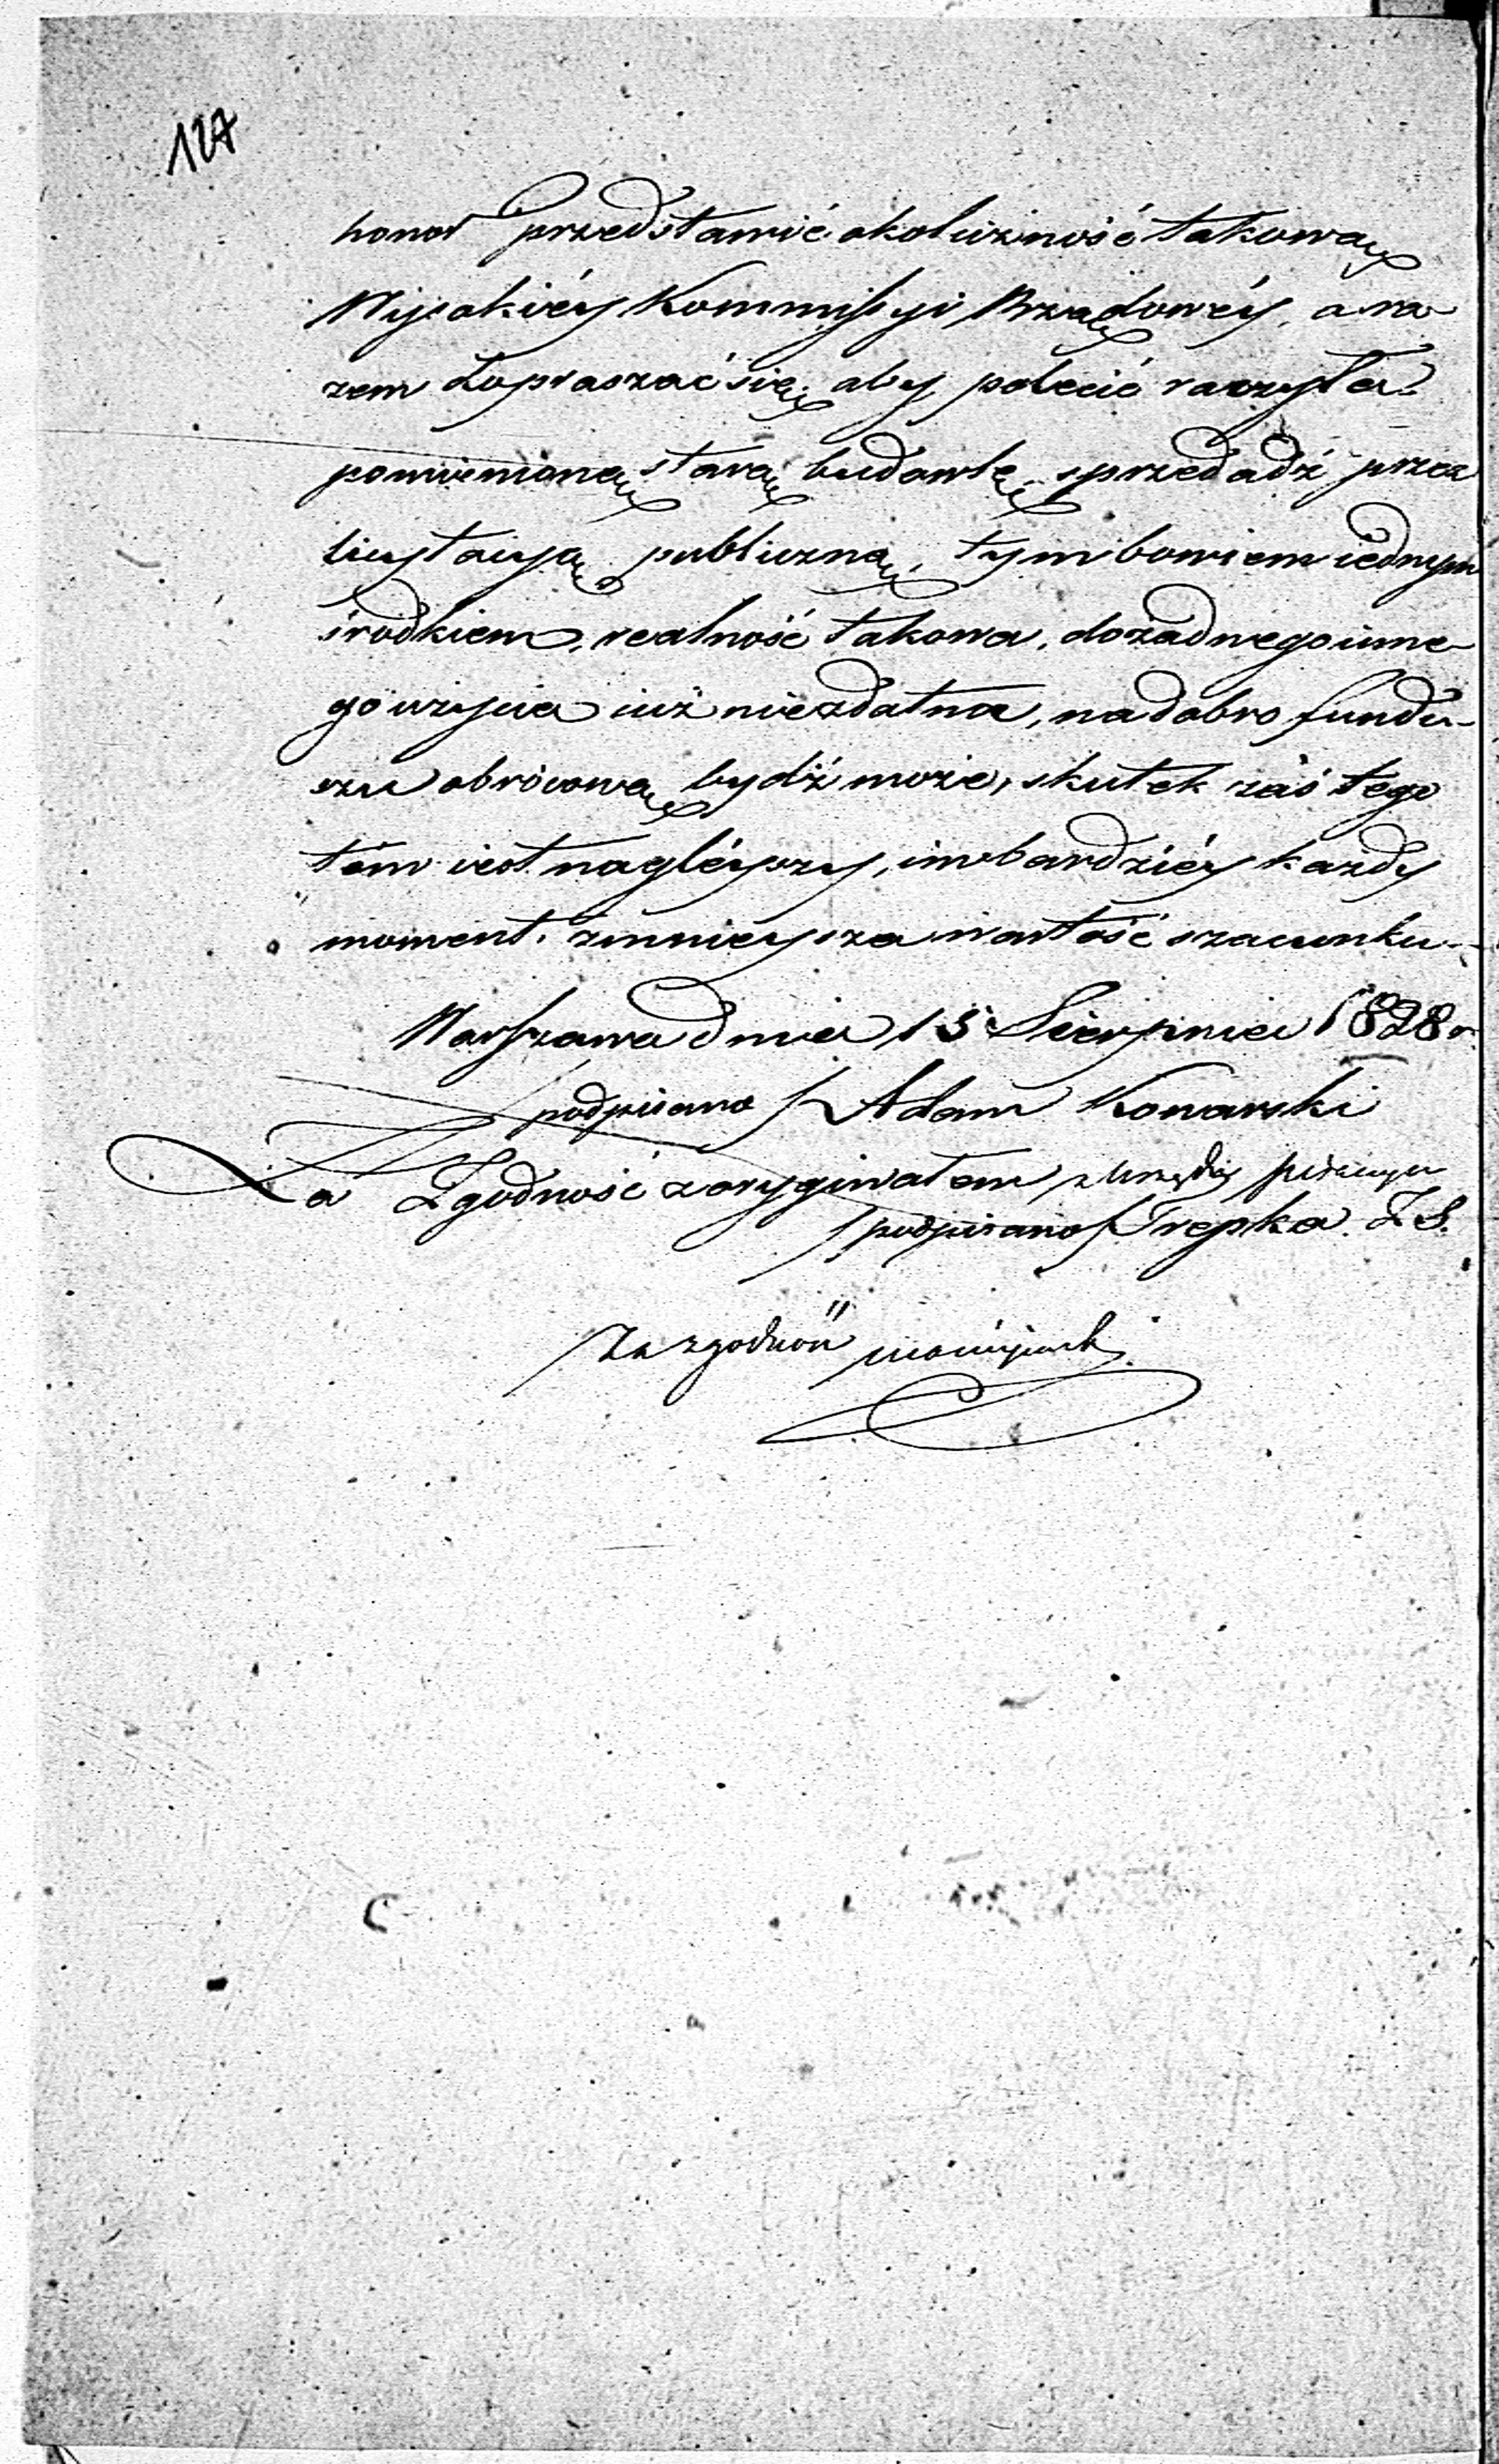 127
honor przedstawić okoliczność takową
Wysokiéy Kommissyi Rządowéy, a ra-
zem dopraszać się, aby polecić raczyła
pomienioną starą budowlę sprzedadź przez
licytacyą publiczną, tym bowiem iednym
środkiem, realność takowa, do żadnego inne-
go użycia iuż niezdatna, na dobro fundu-
szu obróconą bydź może, skutek zaś tego
tém iest nagléyszy, im bardziéy każdy
moment zmnieysza wartość szacunku.
Warszawa dnia 15 Sierpnia 1828 r.
podpisano / Adam Konarski
Za Zgodność z oryginałem
/podpisano/ Trepka. Z. S.
Za zgodność